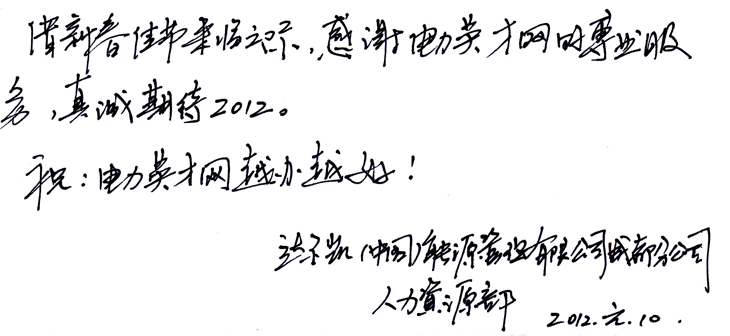 借新春佳节来临之际，感谢电力英才网的专业服
务，真诚期待2012。
祝：电力英才网越办越好！
达尔凯（中国）能源管理有限公司成都分公司
人力資源部 2012.元.10.